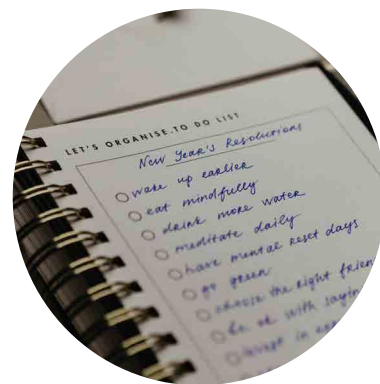 LET'S ORGANISE.TO DO LIST
New Year's Resolutions
wake up earlier
eat mindfully
drink more water
meditate daily
have mental reset days
go green
choose the right
be ok with
invest in